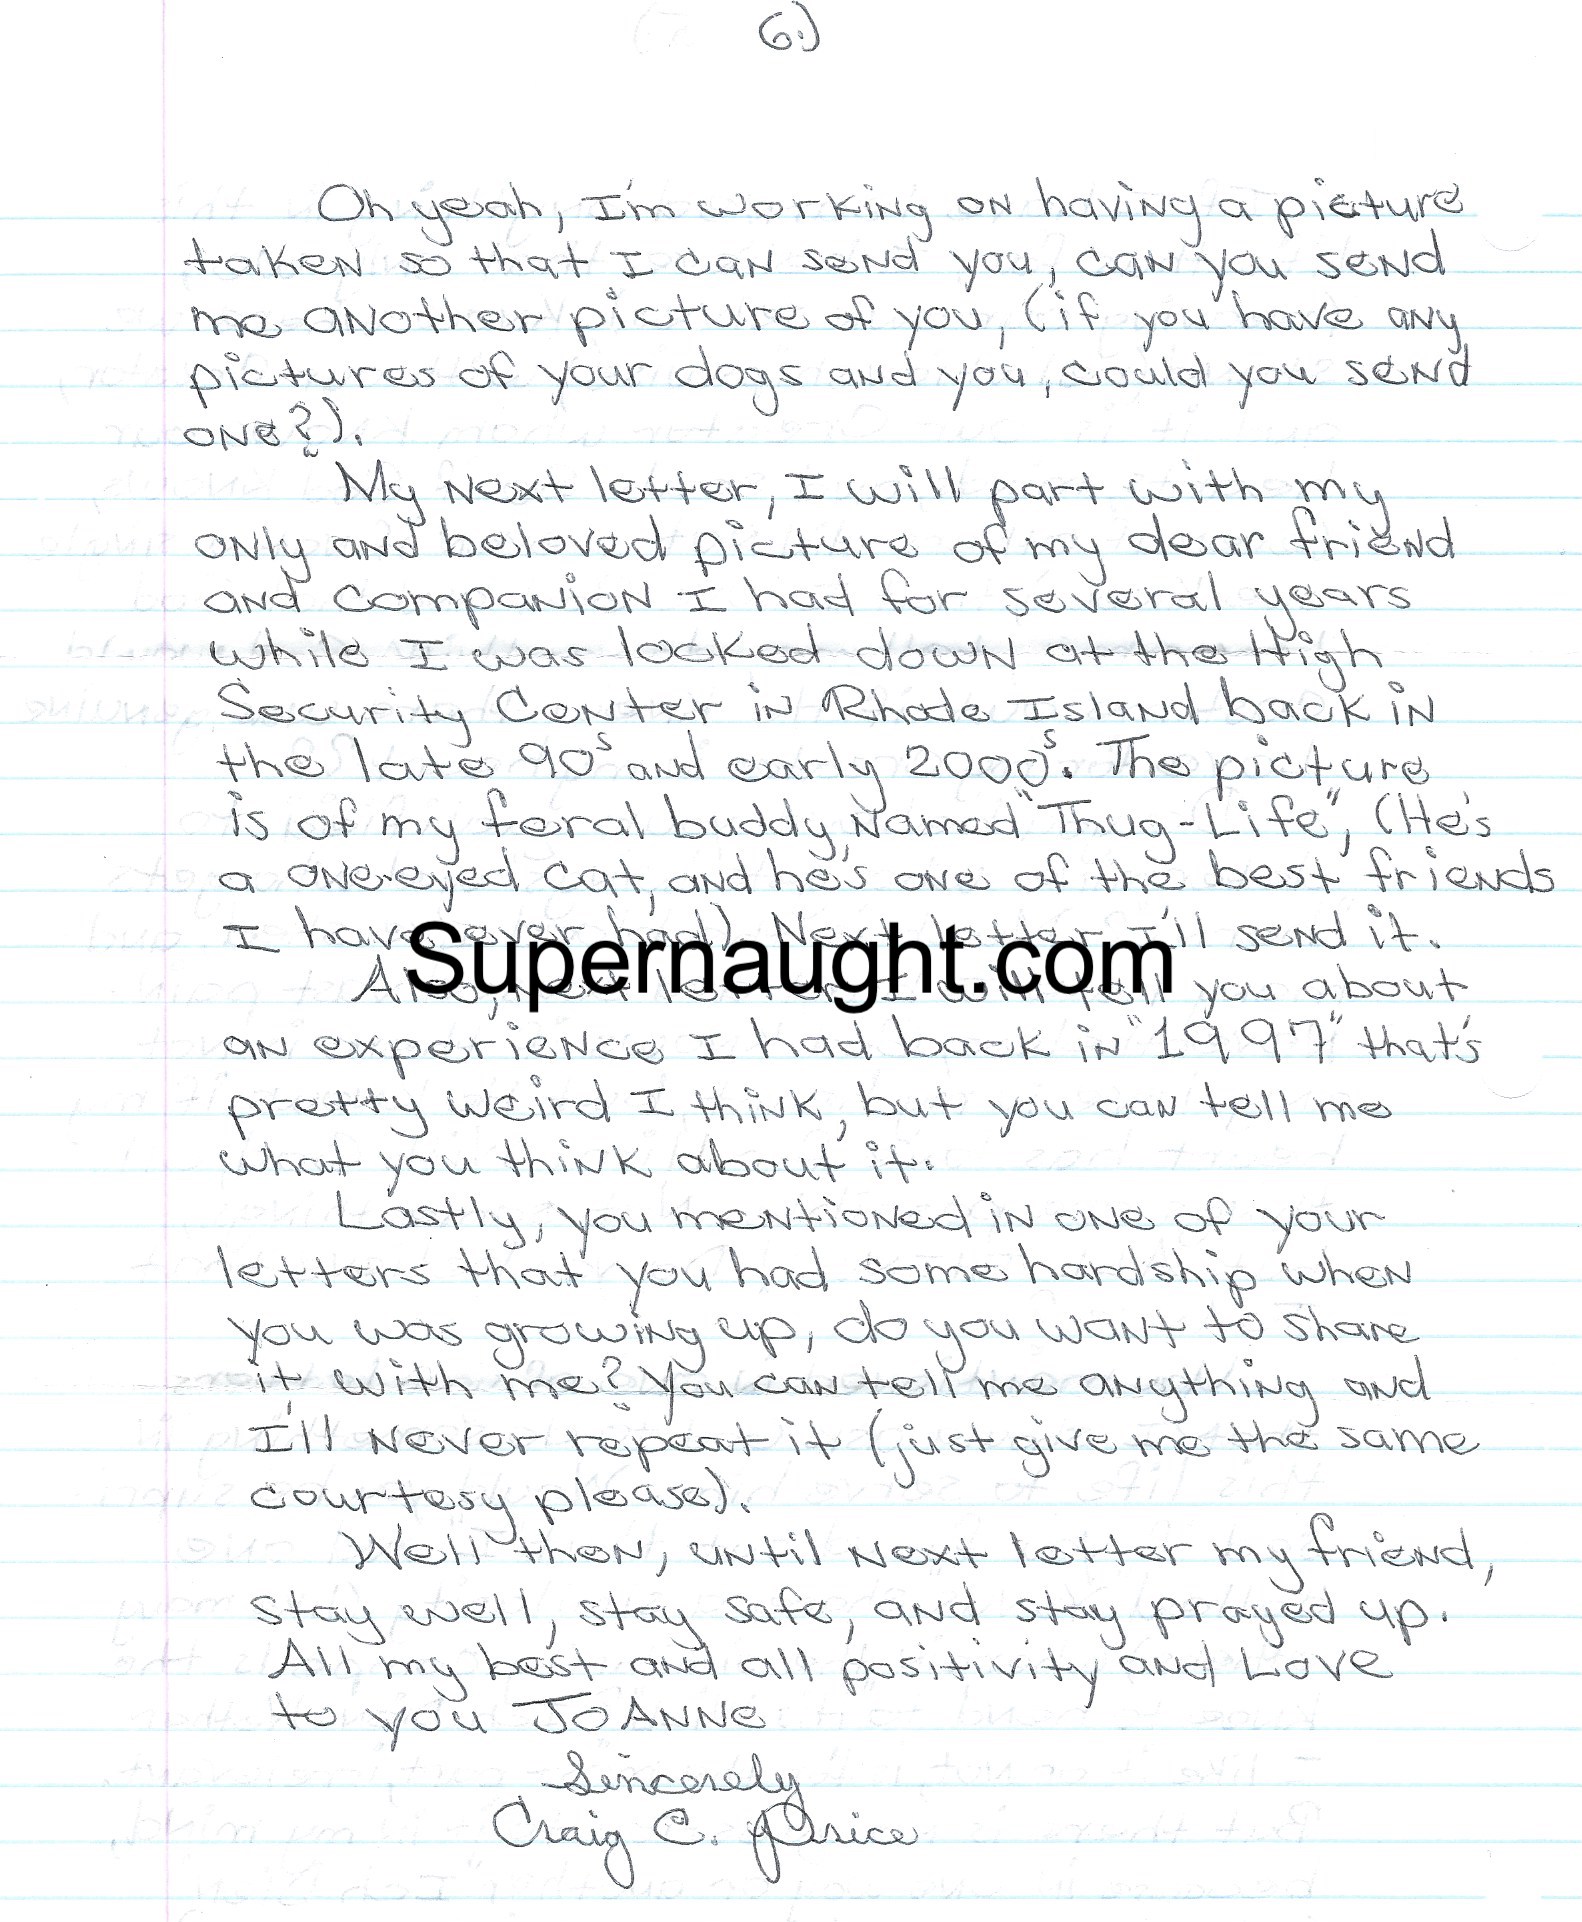 6.)
Oh yeah, I'm working on having a picture
taken so that I can send you, can you send
me another picture of you, (if you have any
pictures of your dogs and you, could you send
one?).
My next letter, I will part with my
only and beloved picture of my dear friend
and companion I had for several years
while I was locked down at the High
Security Center in Rhode Island back in
the late 90s and early 2000s. The picture
is of my feral buddy, named "Thug-Life", (He's
a one-eyed cat, and he's one of the best friends
I have ever had). Next letter I'll send it.
Supernaught.com
Also, next letter I will tell you about
an experience I had back in "1997" that's
pretty weird I think, but you can tell me
what you think about it.
Lastly, you mentioned in one of your
letters that you had some hardship when
you was growing up, do you want to share
it with me? You can tell me anything and
I'll never repeat it (just give me the same
courtesy please).
Well then, until next letter my friend,
stay well, stay safe, and stay prayed up.
All my best and all positivity and Love
to you JOANNe
Sincerely
Craig C. Price